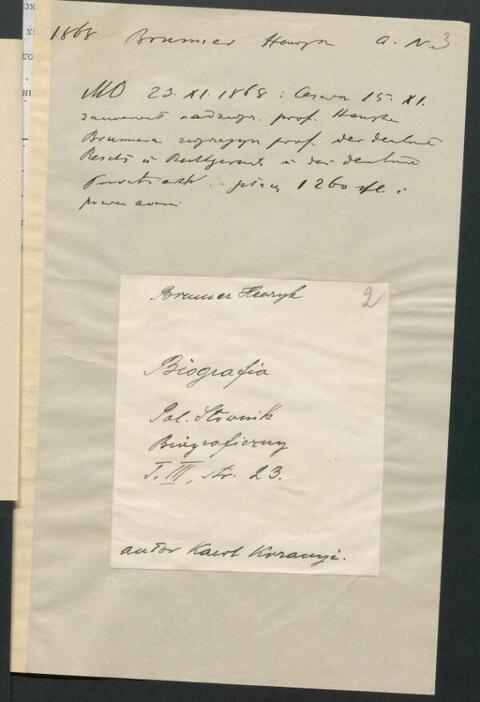 1868 Brunner Henryk a. N. 3
MO 23. XI. 1868 : Cesarz 15. XI.
zamianował nadzwycz. prof. Henryka
Brunnera zwyczajn. prof. der deutsch.
Reichs u Rechtsgesch. u des deutschen
Privatrecht płacą 1260 zł. i
prawem
Brunner Henryk 2
Biografia
Pol. Słownik
Biograficzny
T. III, str. 23.
autor Karol Koranyi.